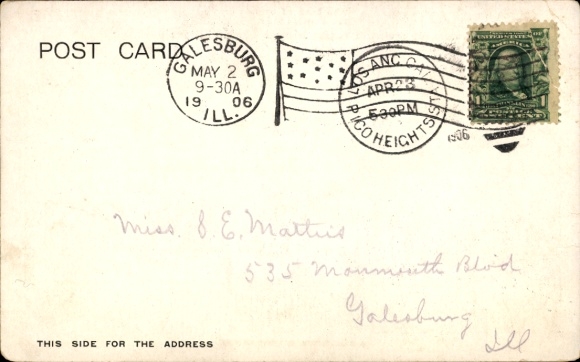 POST CARD
GALESBURG
MAY 2
9-30A
19 06
ILL.
LOS ANG. CAL.
APR 28
530PM
PICO HEIGHTS ST.
1906
UNITED STATES OF
AMERICA
1 1
Miss. E. Mattris
535 Monmouth Blvd
Galesburg
Ill
THIS SIDE FOR THE ADDRESS